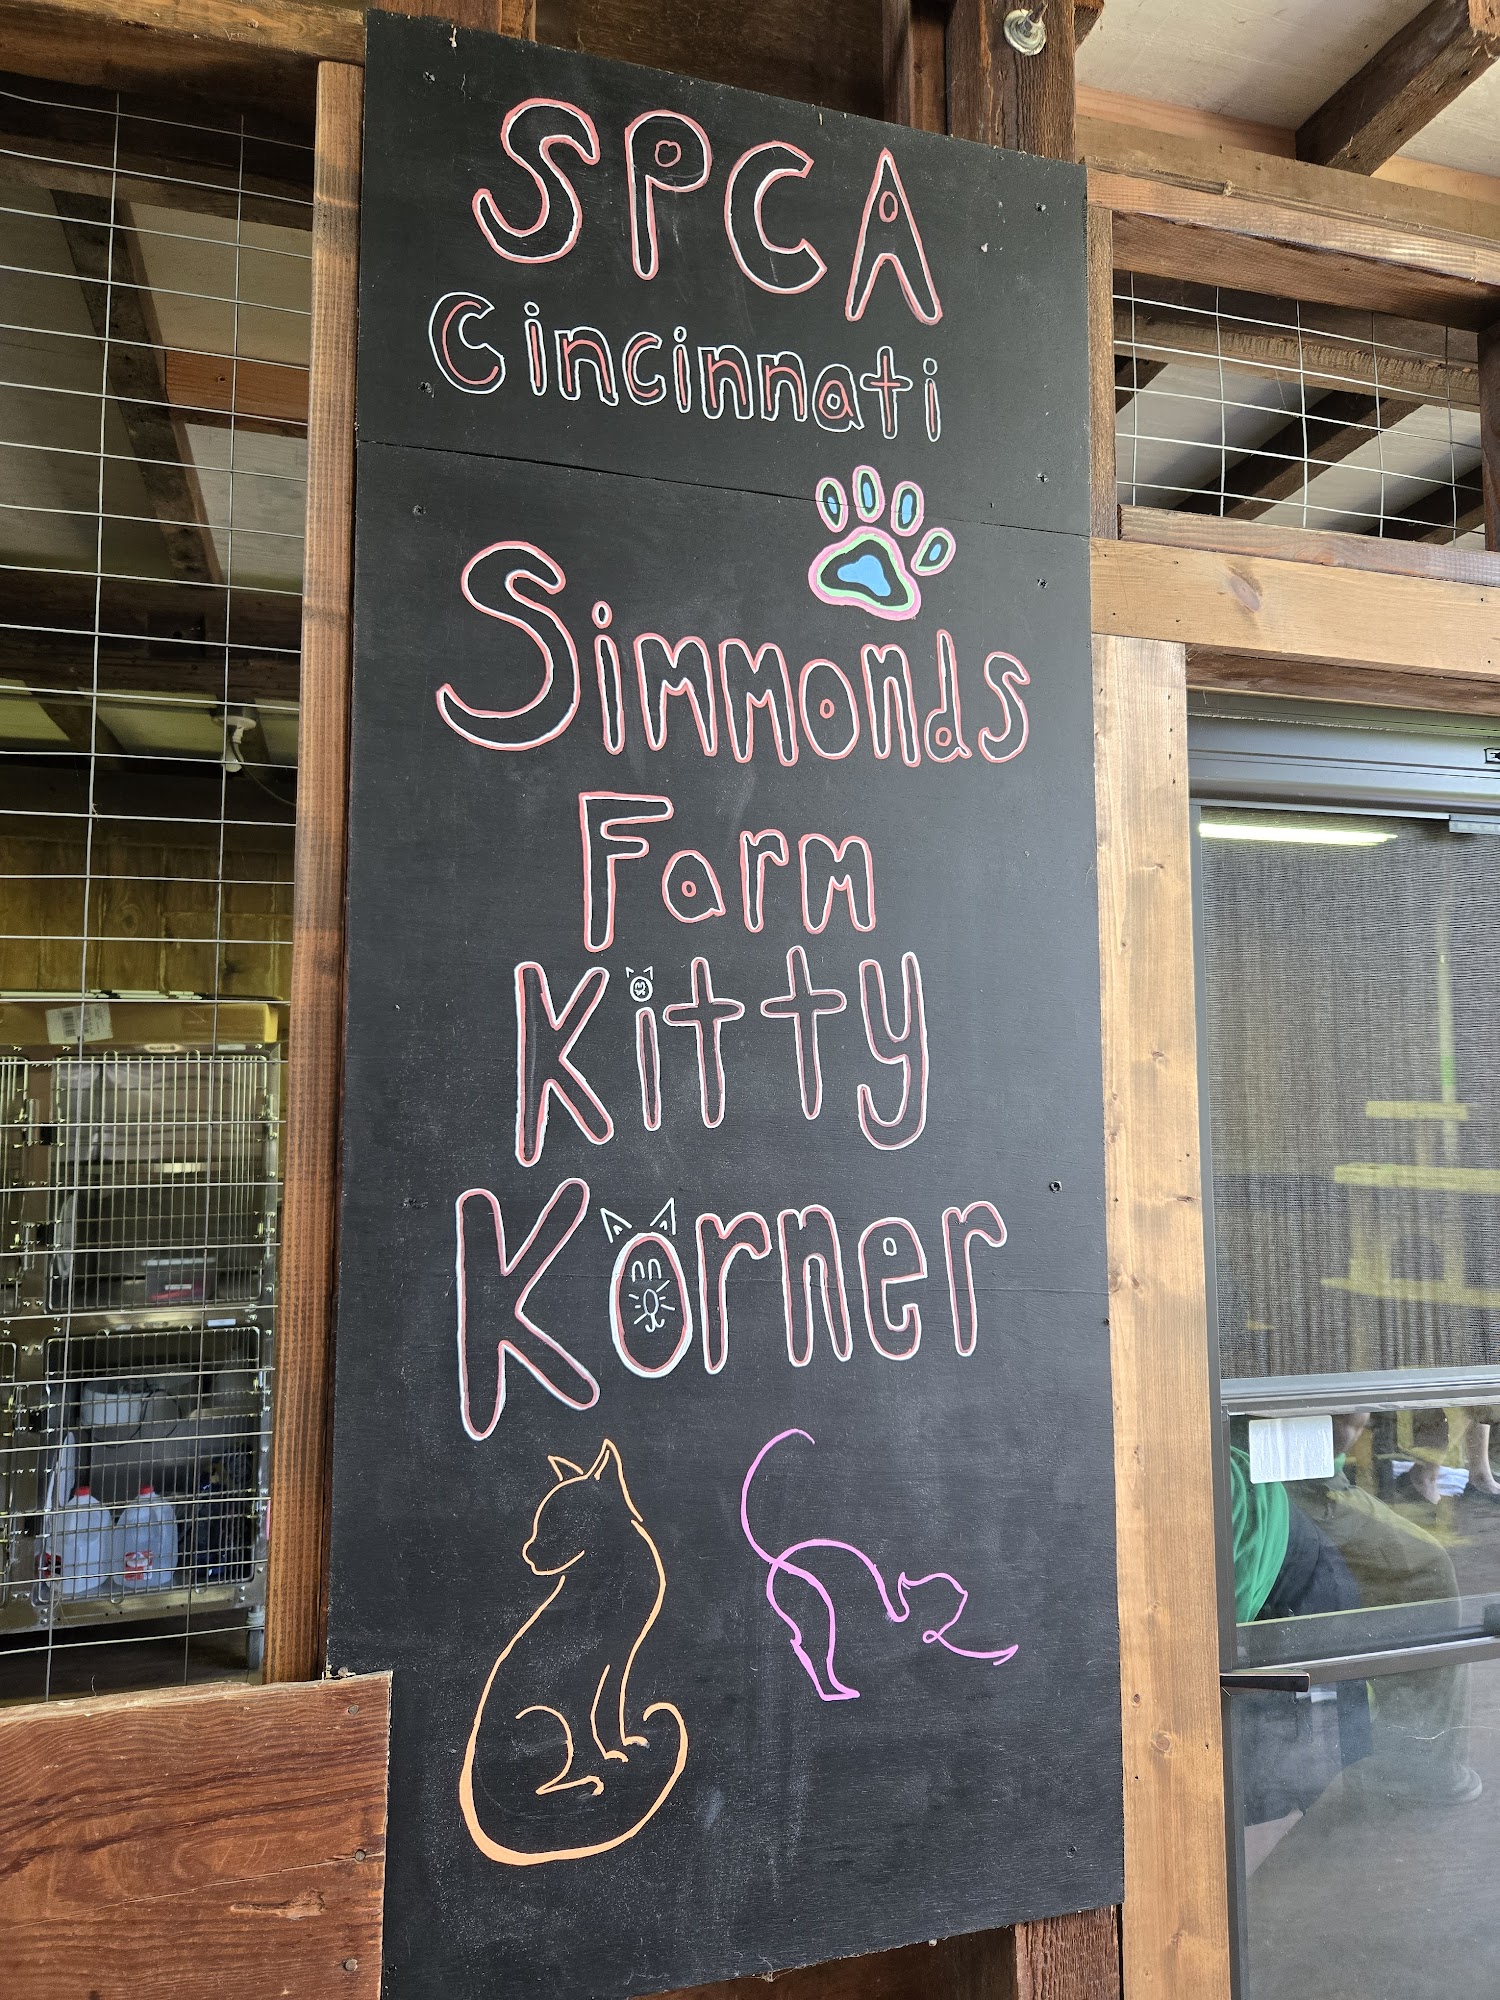 SPCA
Cincinnati
Simmonds
Farm
Kitty
Korner